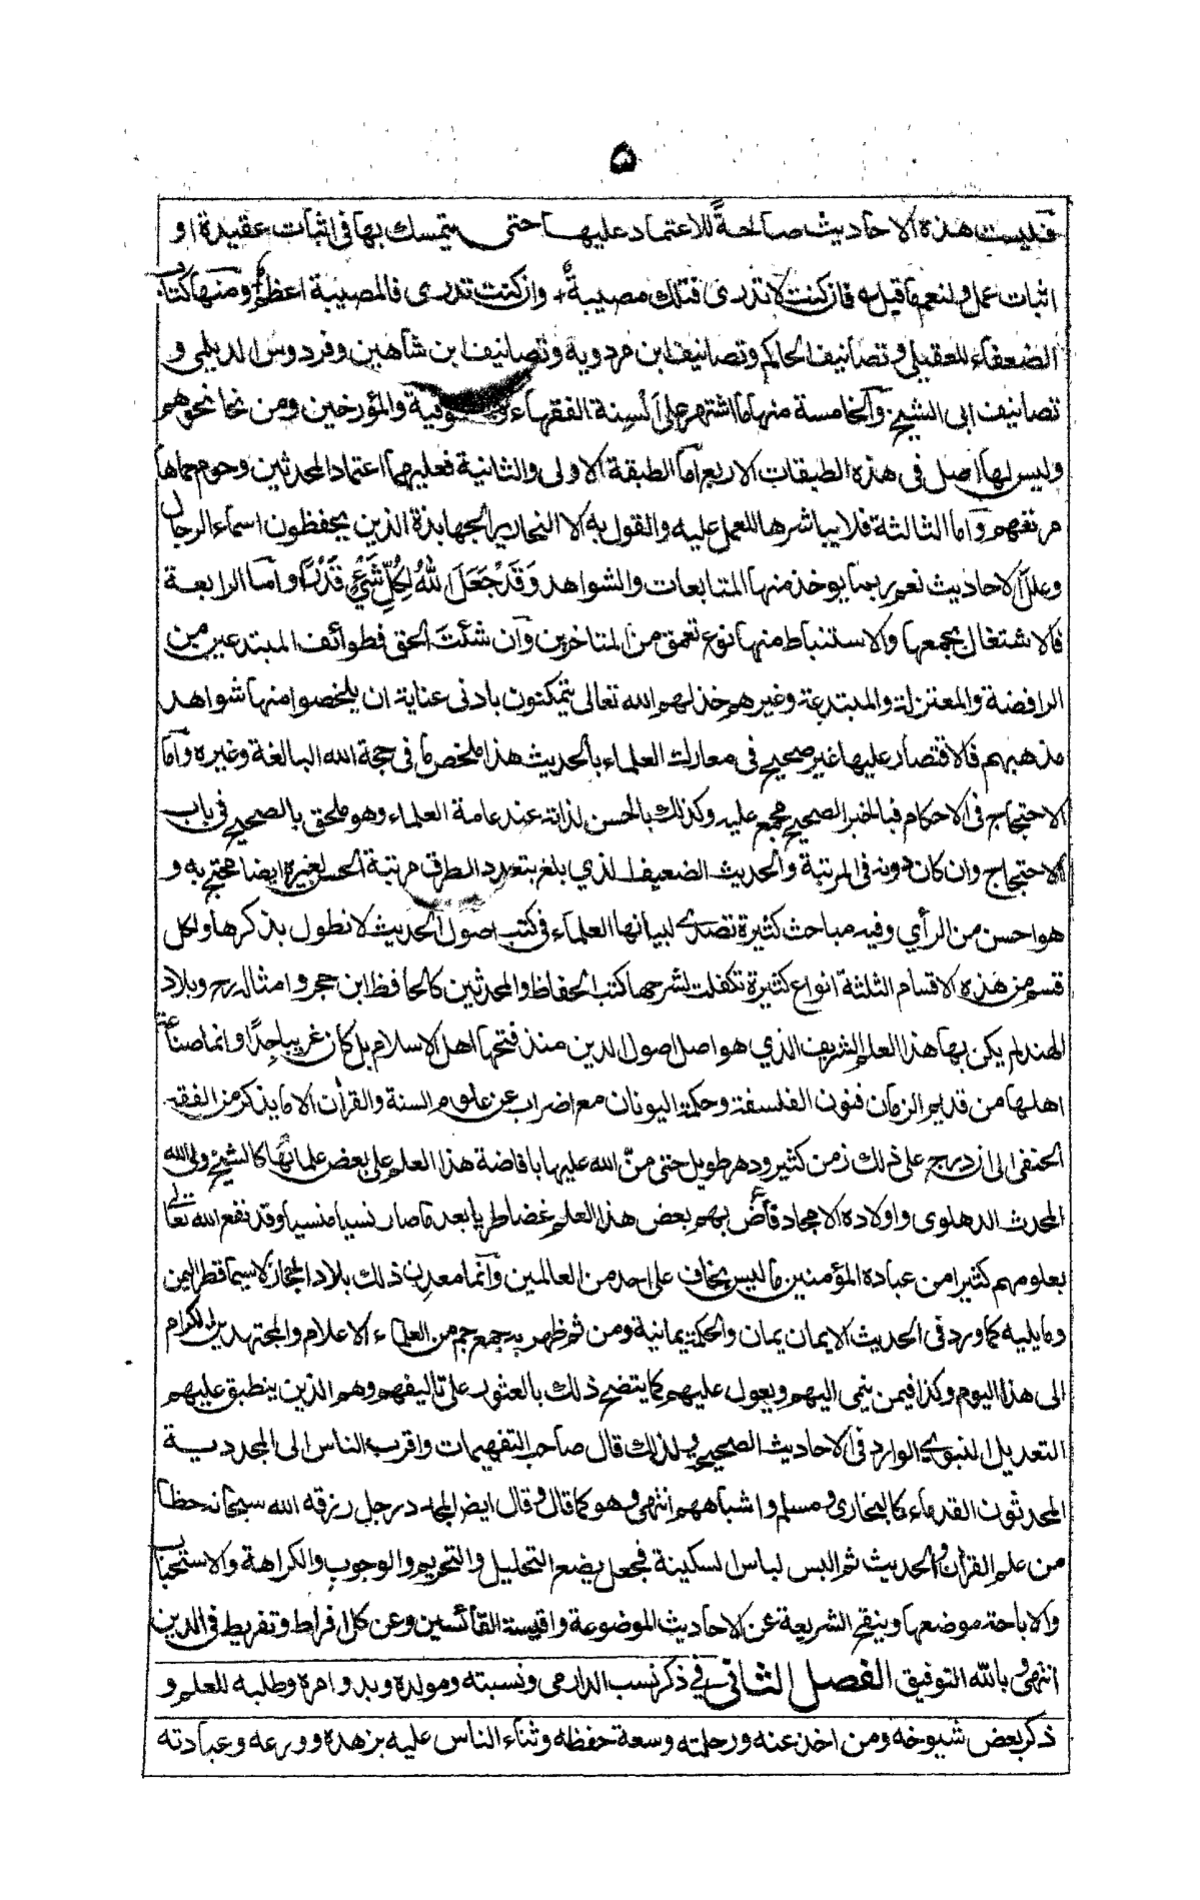 ۵
فليست هذه الاحاديث صالحةً للاعتماد عليها حتى يتمسك بها فى اثبات عقيدة او
اثبات عمل ولنعم ما قيل فان كنت لا تدرى فتلك مصيبةٌ + وان كنت تدرى فالمصيبة اعظم ومنها كتاب
الضعفاء للعقيلى وتصانيف الحاكم وتصانيف ابن مردوية وتصانيف ابن شاهين وفردوس الديلمى و
تصانيف ابى الشيخ والخامسة منها ما اشتهر على السنة الفقهاء والصوفية والمؤرخين ومن نحا نحوهم
وليس لها اصل فى هذه الطبقات الاربع اما الطبقة الاولى والثانية فعليهما اعتماد المحدثين وحوم حماها
مرتعهم واما الثالثة فلا يباشرها للعمل عليه والقول به الا النحارير الجهابذة الذين يحفظون اسماء الرجال
وعلل الاحاديث نعم ربما يوخذ منها المتابعات والشواهد وَقَدْ جَعَلَ اللهُ لِكُلِّ شَيْءٍ قَدْرًا واما الرابعة
فالاشتغال بجمعها والاستنباط منها نوع تعمق من المتاخرين وان شئت الحق فطوائف المبتدعين من
الرافضة والمعتزلة والمبتدعة وغيرهم خذلهم الله تعالى يتمكنون بادنى عناية ان يلخصوا منها شواهد
مذهبهم فالاقتصار عليها غير صحيح فى معارك العلماء بالحديث هذا ملخص ما فى حجة الله البالغة وغيره واما
الاحتجاج فى الاحكام فبالخبر الصحيح مجمع عليه وكذلك بالحسن لذاته عند عامة العلماء وهو ملحق بالصحيح فى باب
الاحتجاج وان كان دونه فى المرتبة والحديث الضعيف الذي بلغ بتعدد الطرق مرتبة الحسن لغيره ايضا محتج به و
هو احسن من الرأي وفيه مباحث كثيرة تصدى لبيانها العلماء فى كتب اصول الحديث لا نطول بذكرها ولكل
قسم من هذه الاقسام الثلثة انواع كثيرة تكفلت لشرحها كتب الحفاظ والمحدثين كالحافظ ابن حجر وامثاله رح وبلاد
الهند لم يكن بها هذا العلم الشريف الذي هو اصل اصول الدين منذ فتحها اهل الاسلام بل كان غريبا جدًا وانما صناعة
اهلها من قديم الزمان فنون الفلسفة وحكمة اليونان مع اضراب عن علوم السنة والقرأن الا ما يذكر من الفقه
الحنفى الى ان درج على ذلك زمن كثير ودهر طويل حتى منّ الله عليها بافاضة هذا العلم على بعض علمائها كالشيخ ولى الله
المحدث الدهلوى واولاده الامجاد فأض بهم بعض هذا العلم غضا طريا بعد ما صار نسيا منسيا وقد نفع الله تعالى
بعلومهم كثيرا من عباده المؤمنين ما ليس بخاف على احد من العالمين وانما معدن ذلك بلاد الحجاز لا سيما قطر اليمن
وما يليه كما ورد فى الحديث الايمان يمان والحكمة يمانية ومن ثم ظهر به جمع جم من العلماء الاعلام والمجتهدين الكرام
الى هذا اليوم وكذا فيمن ينمى اليهم ويعول عليهم كما يتضح ذلك بالعثور على تاليفهم وهم الذين ينطبق عليهم
التعديل النبوي الوارد فى الاحاديث الصحيحة ولذلك قال صاحب التفهيمات واقرب الناس الى المجددية
المحدثون القدماء كالبخاري ومسلم واشباههم انتهى وهو كما قال وقال ايضا المجدد رجل رزقه الله سبحانه حظا
من علم القرأن والحديث ثم البس لباس السكينة فجعل يضع التحليل والتحريم والوجوب والكراهة والاستحباب
والاباحة موضعها وينقح الشريعة عن الاحاديث الموضوعة واقيسة القأئسين وعن كل افراط وتفريط فى الدين
انتهى وبالله التوفيق الفصل الثانى فى ذكر نسب الدارمى ونسبته ومولده وبدو امره وطلبه للعلم و
ذكر بعض شيوخه ومن اخذ عنه ورحلته وسعة حفظه وثناء الناس عليه بزهده وورعه وعبادته